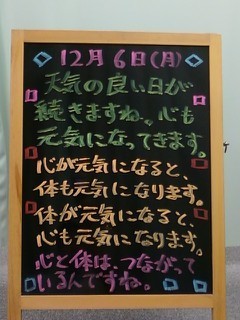 12月6日(月)
天気の良い日が
続きますね。心も
元気になってきます。
心が元気になると、
体も元気になります。
体が元気になると、
心も元気になります。
心と体は、つながって
いるんですね。